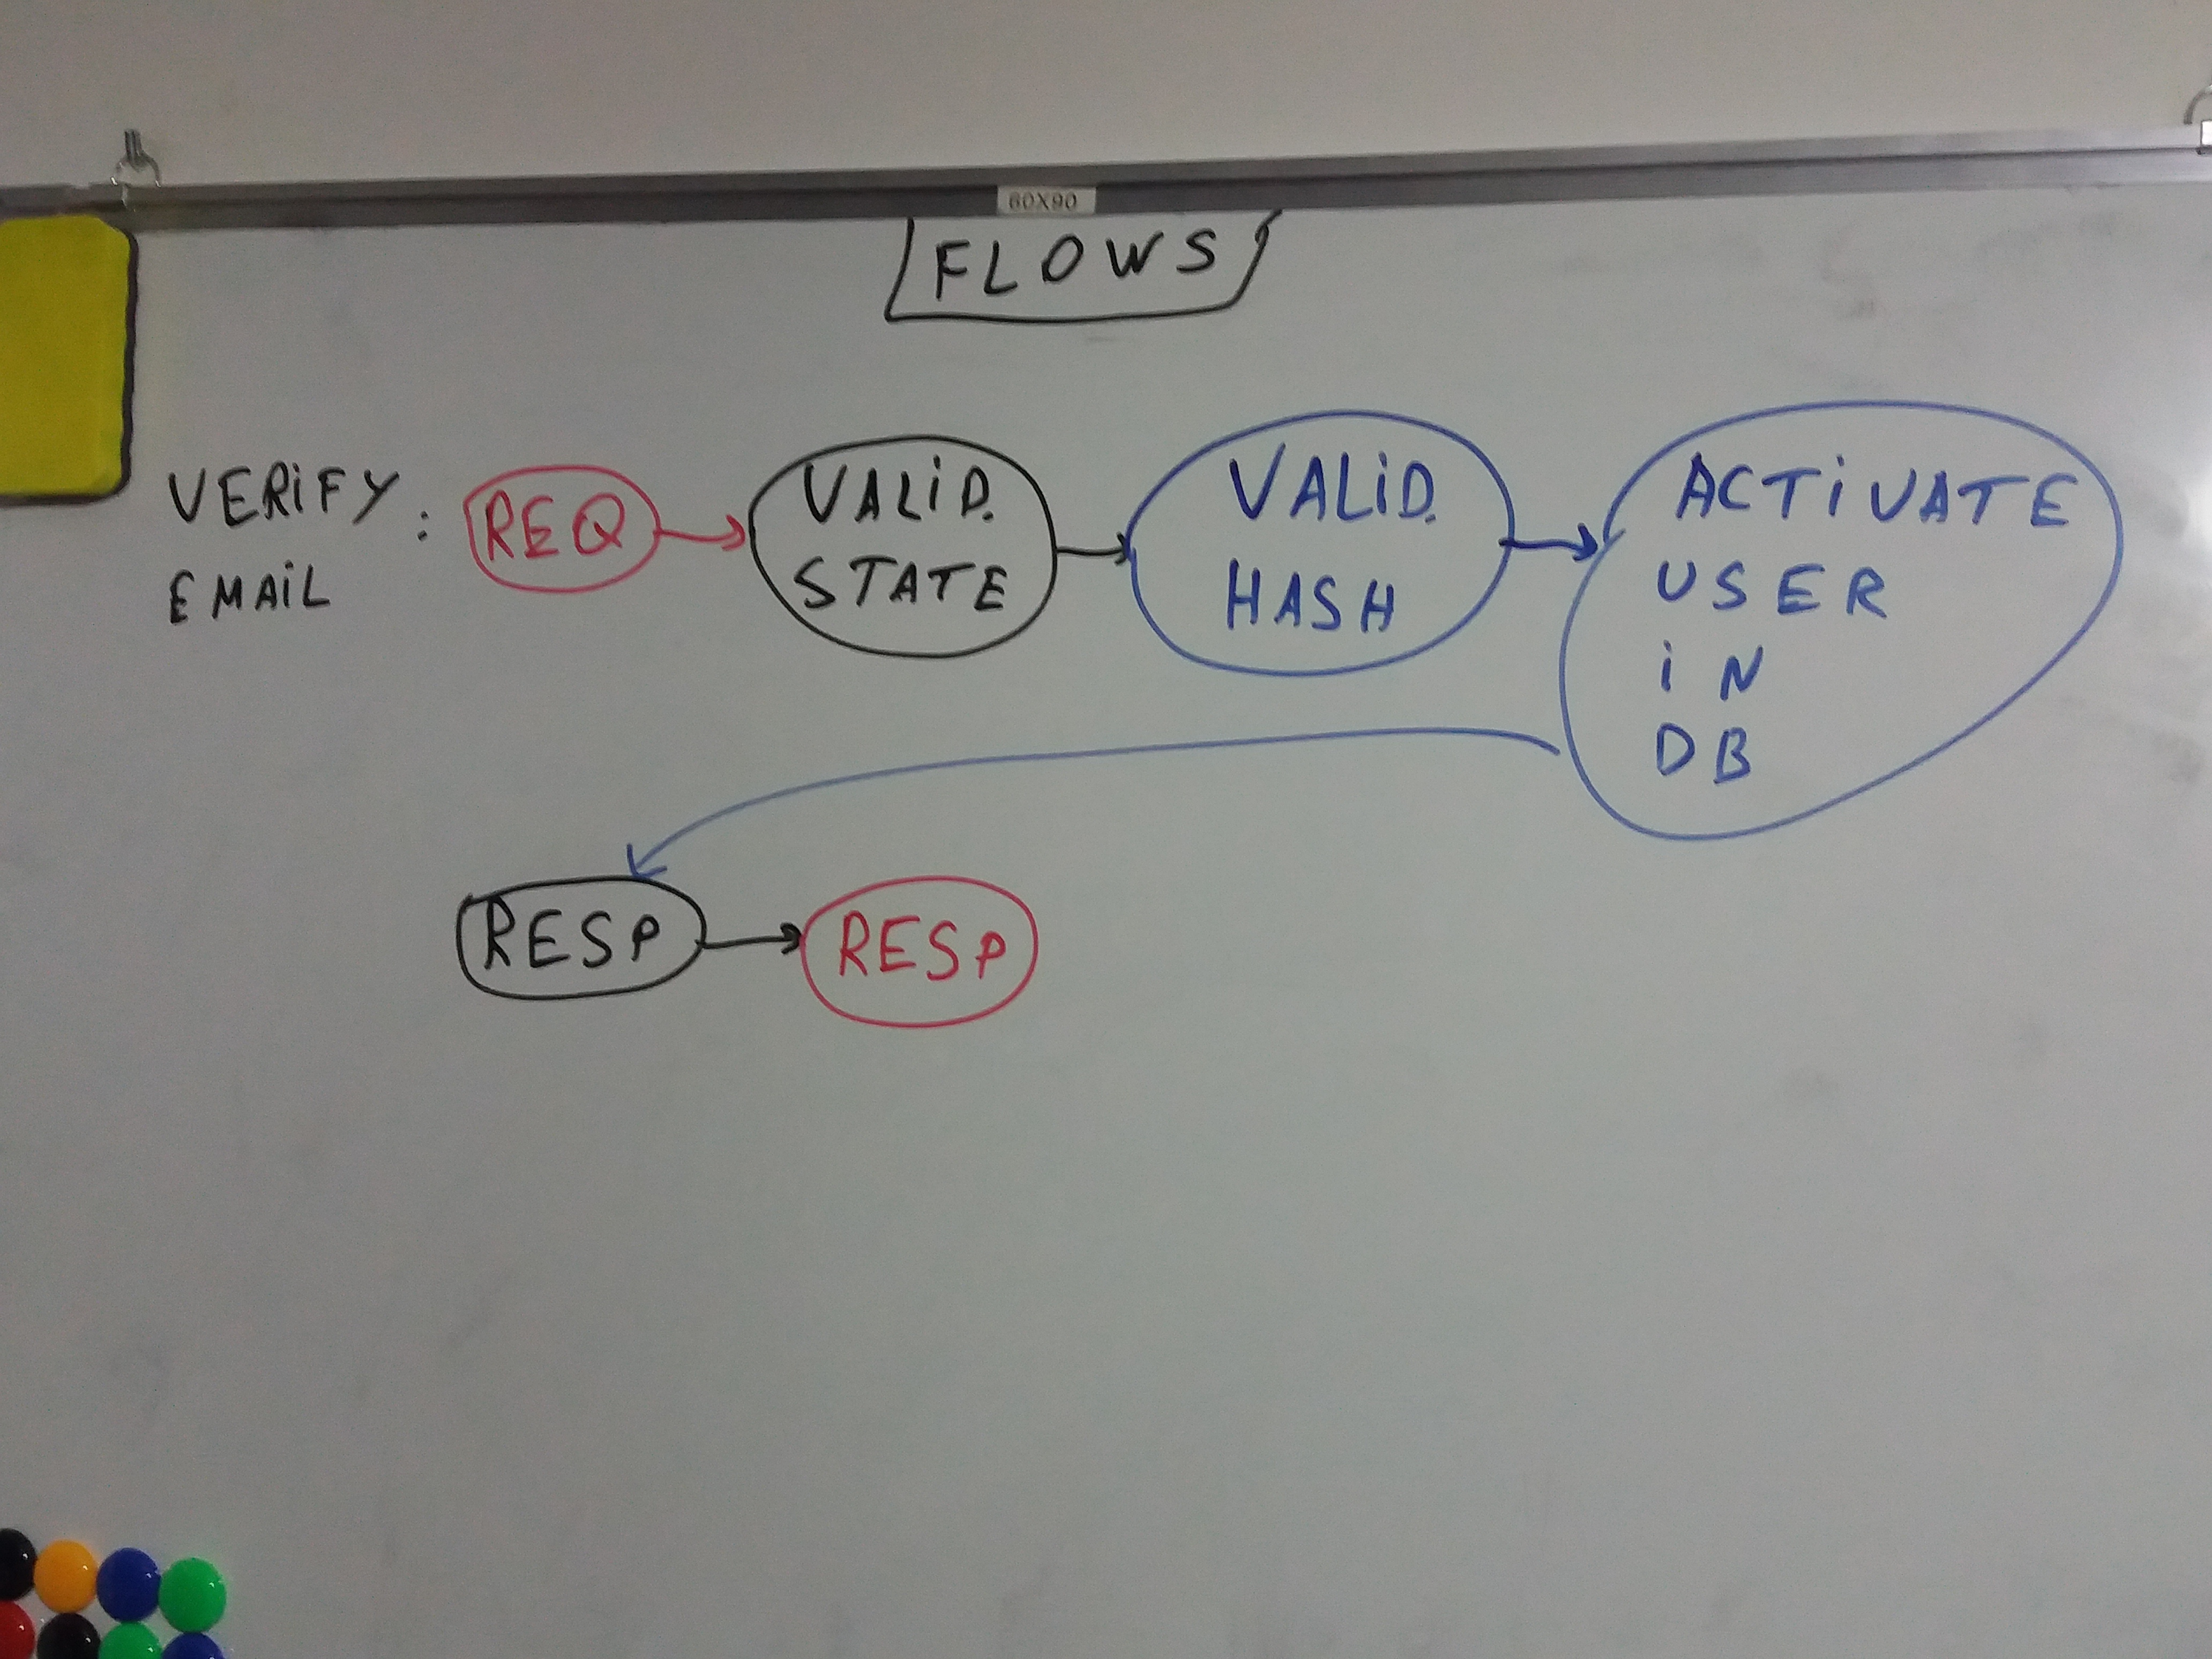 60X90
FLOWS
VERiFY :
EMAiL
REQ
VALiD.
STATE
VALiD.
HASH
ACTiVATE
USER
iN
DB
RESP
RESP